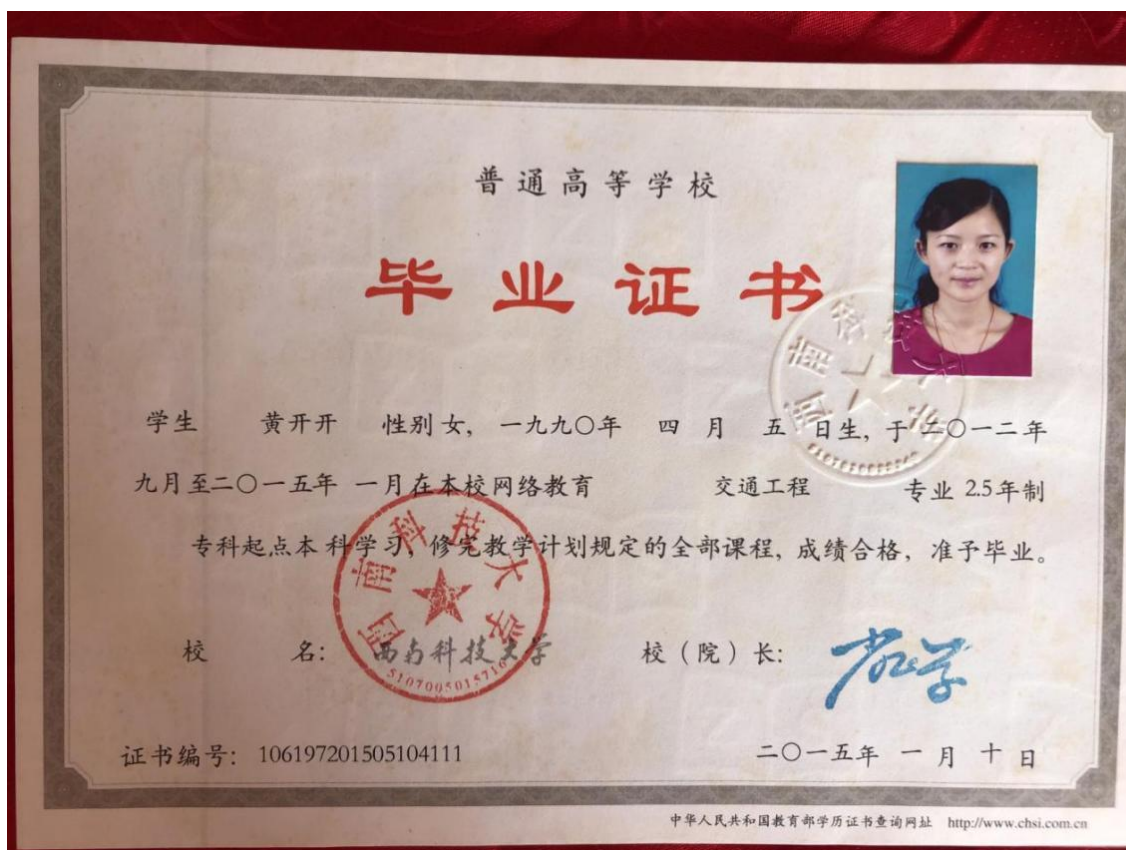 普通高等学校
毕业证书
学生 黄开开 性别 女, 一九九〇年 四 月 五 日生, 于 二〇一二年
九月至二〇一五年 一月在本校网络教育 交通工程 专业 2.5年制
专科起点本科学习, 修完教学计划规定的全部课程, 成绩合格, 准予毕业。
校 名: 西南科技大学 校（院）长:
西南科技大学
5107005015716
西南科技大学
证书编号: 106197201505104111 二〇一五年 一 月 十 日
中华人民共和国教育部学历证书查询网址 http://www.chsi.com.cn